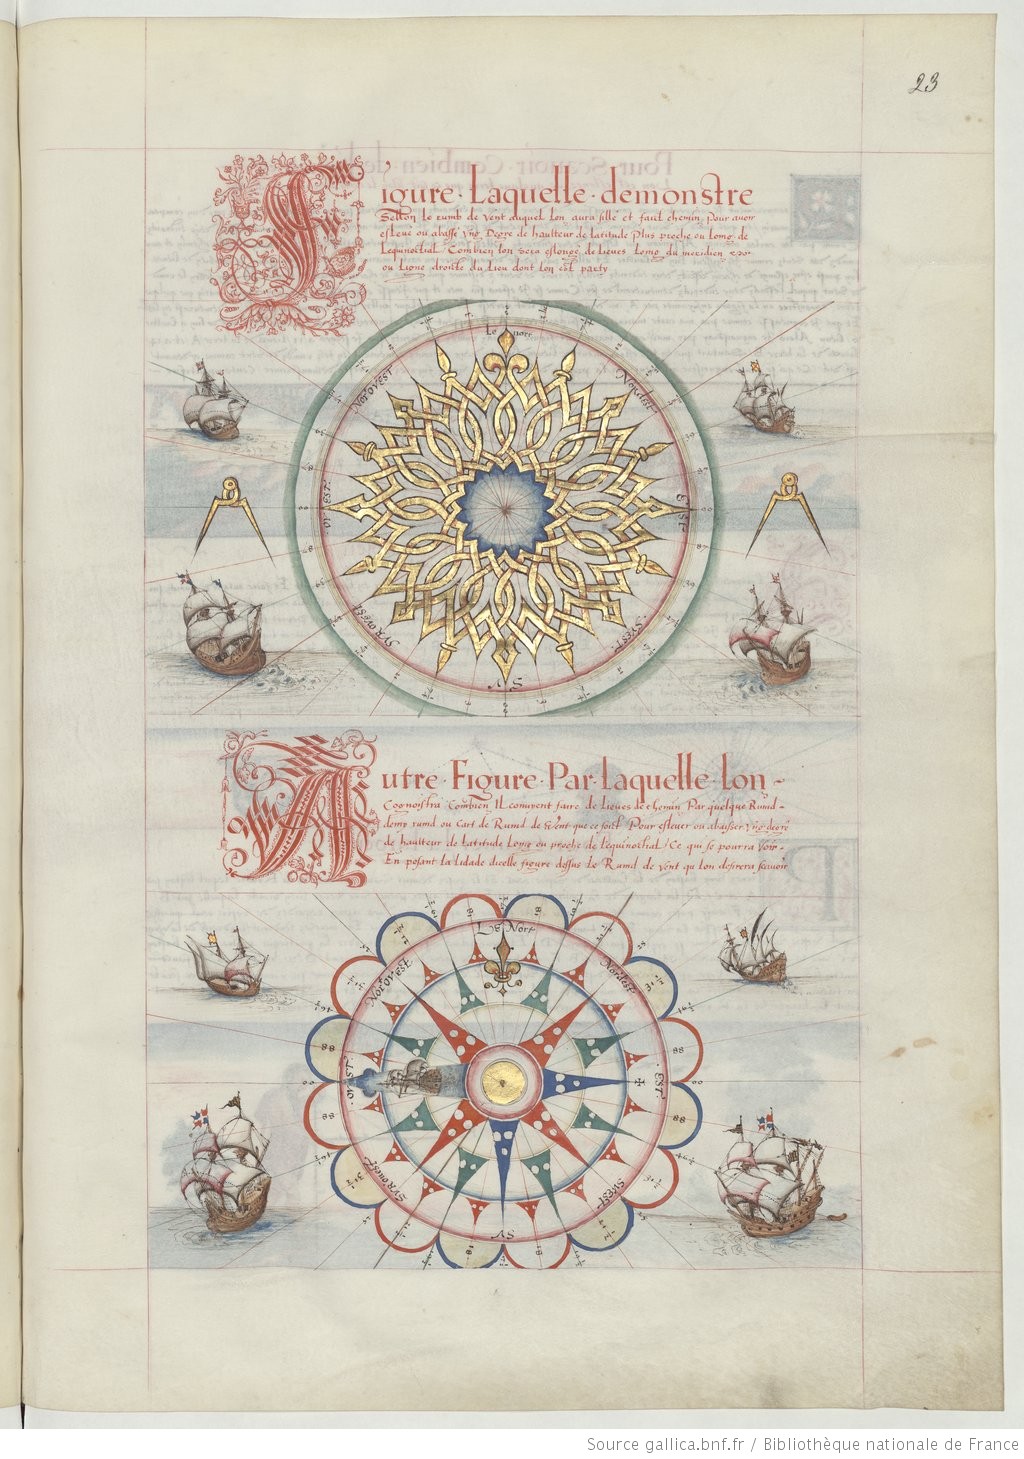 23
Figure · Laquelle · demonstre
Sellon le rumb de vent duquel lon aura sille et faict chemin, pour avoir
esleve ou abaisse vng Degre de haulteur de latitude Plus proche ou Loing de
Lequinoctial, Combien lon sera eslongé de lieues Loing du meridien
ou Ligne droitte du Lieu dont Lon est party
Le nort
Norovest
Nordest
ovest
Est
Svrovest
Svest
Sv
Autre · Figure · Par · Laquelle · Lon
Cognoistra Combien Il convient faire de Lieues de chemin Par quelque Rumd
demy rumd ou Cart de Rumd de Vent que ce soit Pour eslever ou abaisser vng degre
de haulteur de Latitude Loing ou proche de lequinoctial Ce qui se pourra voir
En posant la lidade dicelle figure dessus Le Rumd de vent qu Lon desirera scavoir
Le Nort
Norovest
Nordest
ovest
Est
Svrovest
Svest
Sv
Source gallica.bnf.fr / Bibliothèque nationale de France